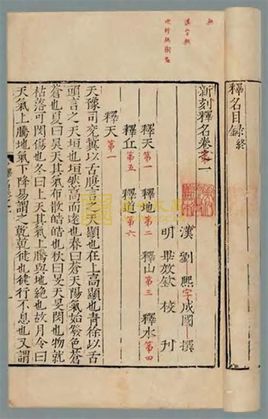 釋名目錄終
新刻釋名卷之一
漢 劉熙字成國 撰
明 畢效欽 校刊
釋天第一 釋地第二 釋山第三 釋水第四
釋丘第五 釋道第六
釋天第一
天豫司兗冀以舌腹言之天顯也在上高顯也青徐以舌
頭言之天垣也垣然高而遠也春曰蒼天陽氣始發色蒼
蒼也夏曰昊天其氣布散皓皓也秋曰旻天旻閔也物就
枯落可閔傷也冬曰上天其氣上騰與地絕也故月令曰
天氣上騰地氣下降易謂之乾乾健也健行不息也又謂